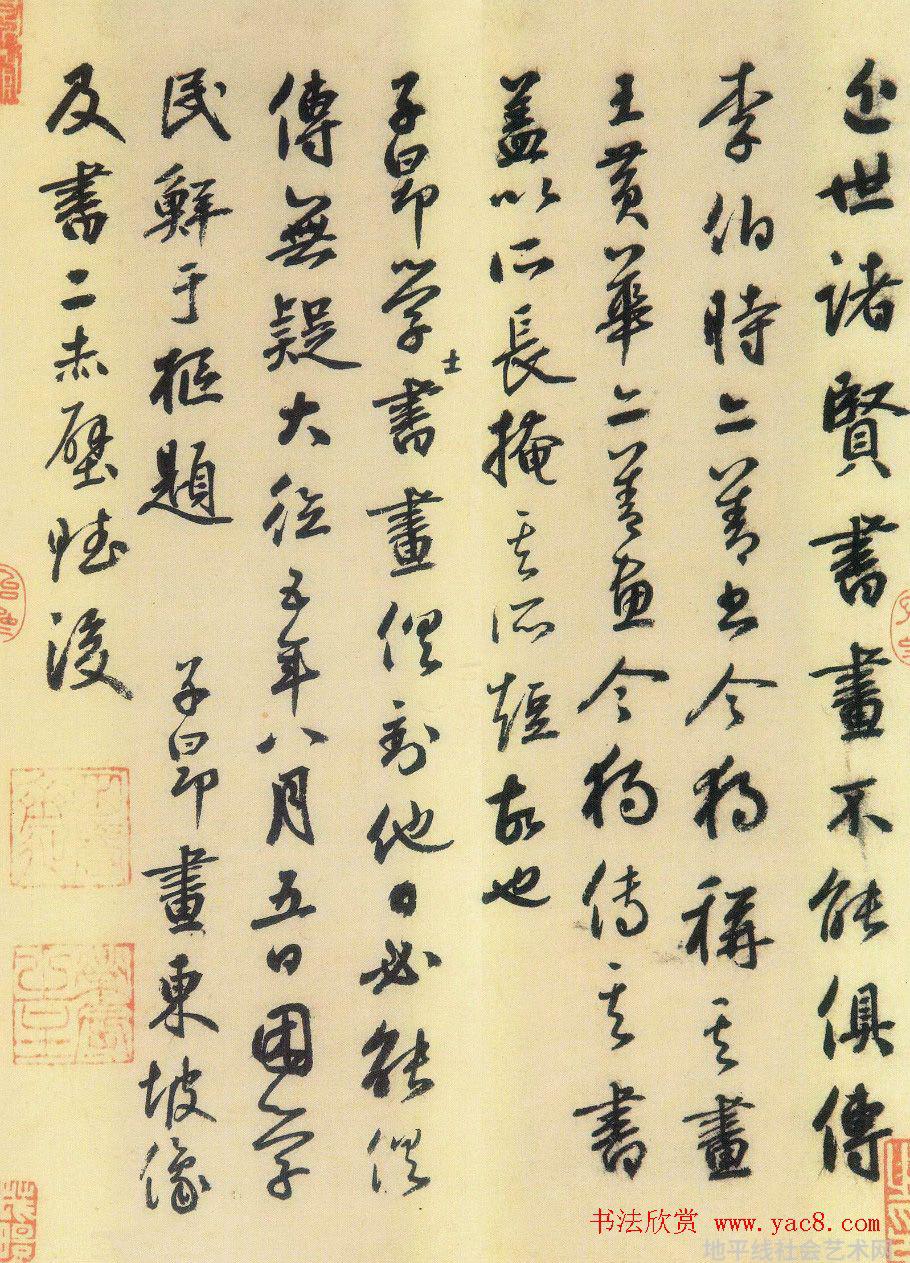 近世諸賢書畫不能俱傳
李伯時亦善書今獨稱其畫
王黃華亦善畫今獨傳其書
蓋以所長掩其所短故也
子昂學士書畫俱到他日必能俱
傳無疑大德五年八月五日困學
民鮮于樞題 子昂畫東坡像
及書二赤壁賦後
书法欣赏 www.yac8.com
地平线社会艺术网